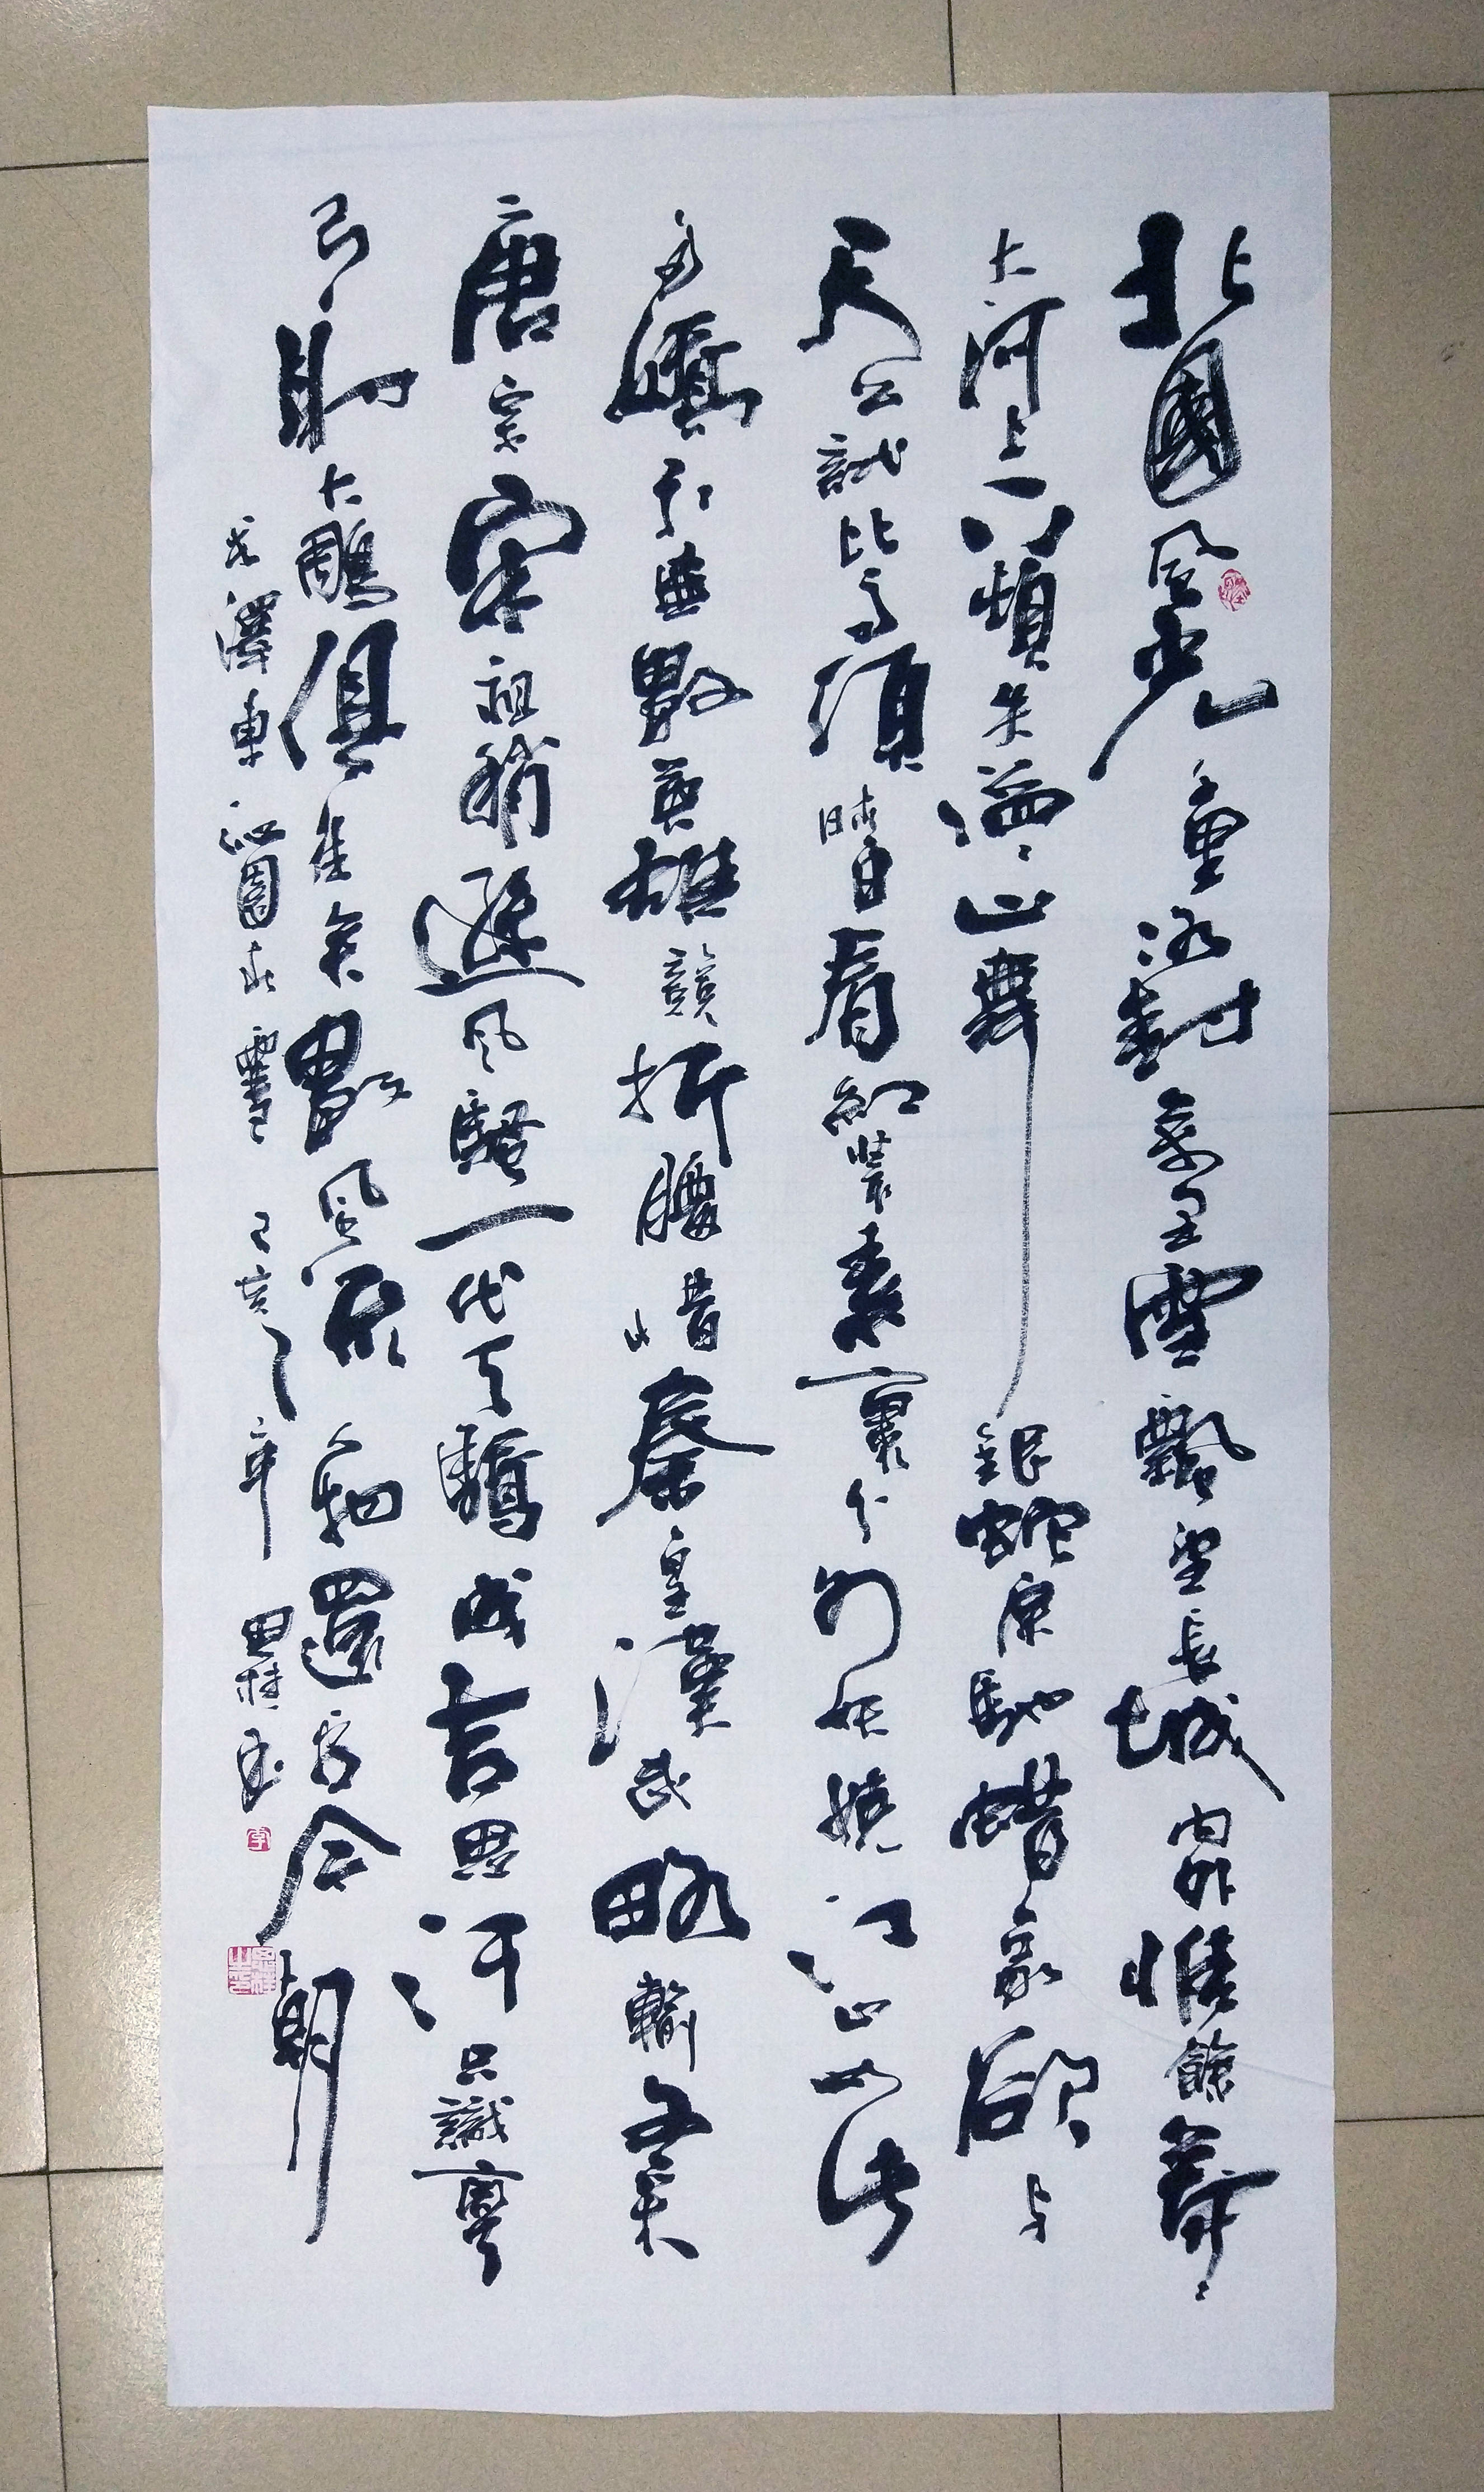 北國風光千里冰封萬里雪飄望長城內外惟餘莽〻
大河上下頓失滔〻山舞銀蛇原馳蠟象欲與
天公試比高須晴日看紅裝素裹分外妖嬈江山如此
多嬌引無數英雄競折腰惜秦皇漢武略輸文采
唐宗宋祖稍遜風騷一代天驕成吉思汗只識彎
弓射大鵰俱往矣數風流人物還看今朝
毛澤東 沁園春雪 己亥之年 思桂書